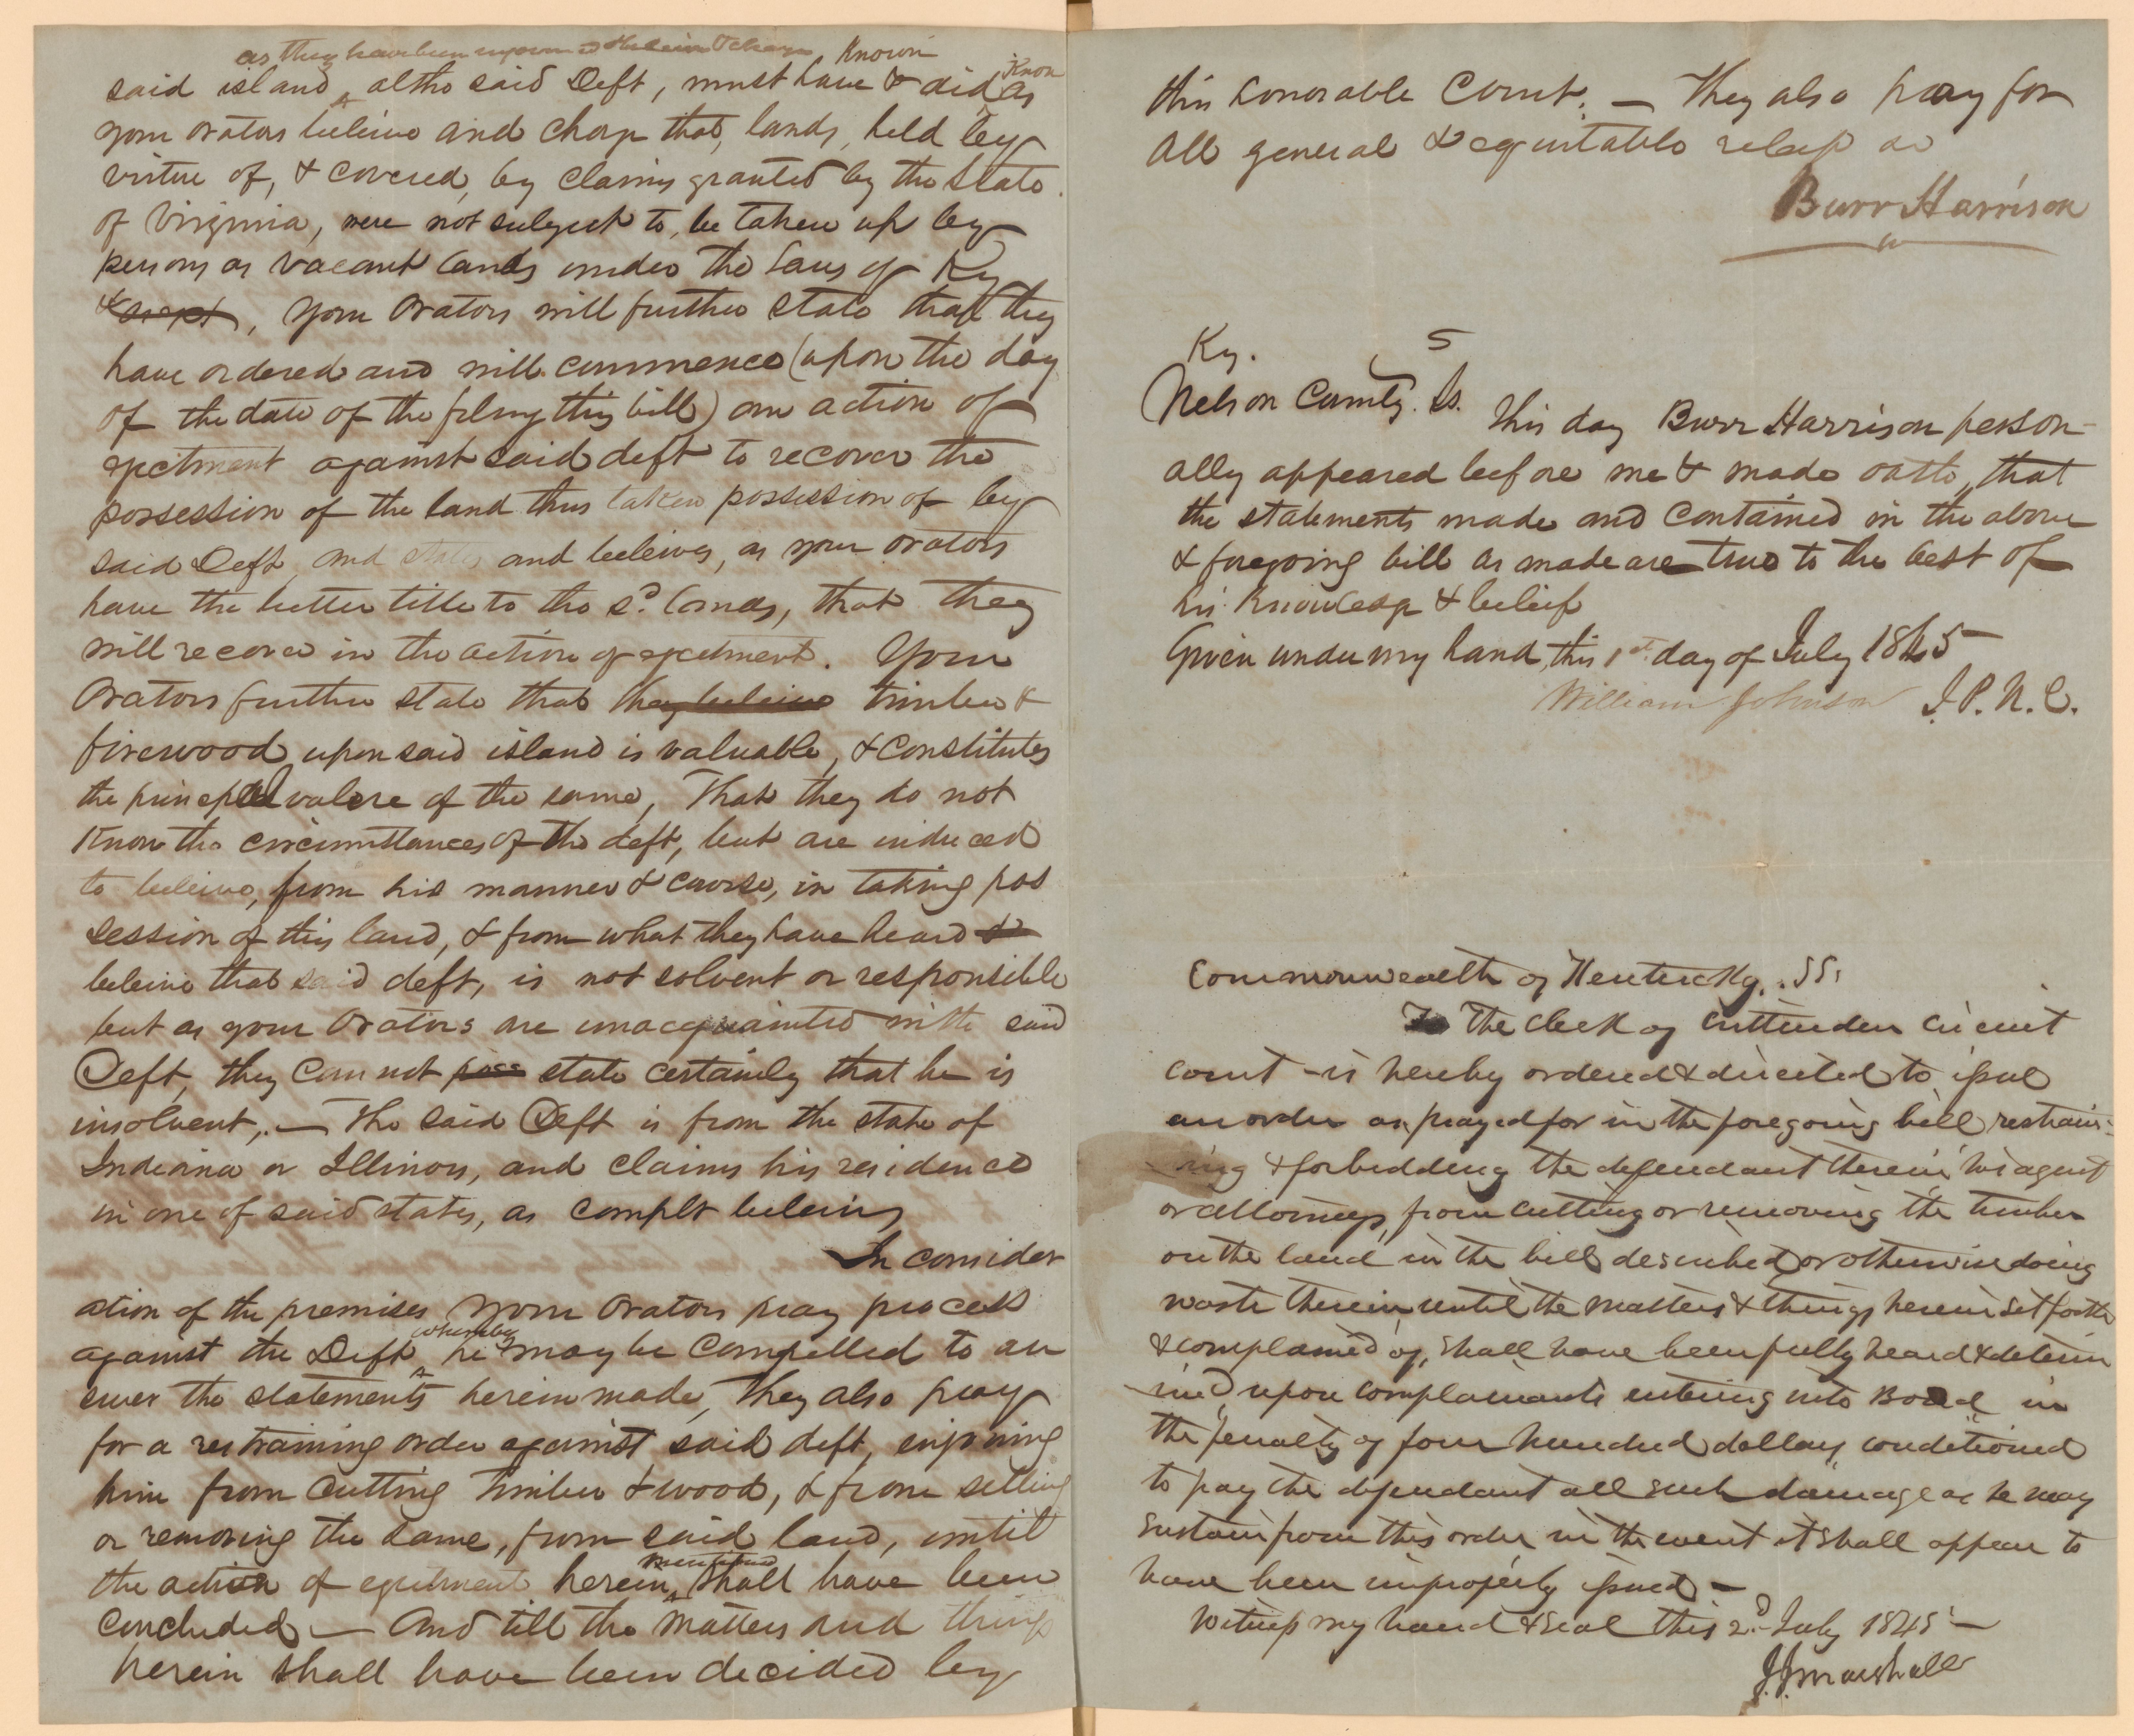 as they have been informed & beleive & charge, known
said island, altho said Deft, must have & did, as know
your orators beleive and charge that, lands, held by
virtue of, & covered, by claims granted by the State
of Virginia, were not subject to, be taken up by
persons as vacant lands under the Laws of Ky
& , your Orators will further state that they
have ordered and will commence (upon the day
of the date of the filing this bill) an action of
ejectment against said deft to recover the
possession of the land thus taken possession of by
said Deft, and states and beleives, as your orators
have the better title to the sd. Lands, that they
will recover in the action of ejectment. Your
Orators further state that they beleive timber &
firewood upon said island is valuable, & constitutes
the principal value of the same, That they do not
know the circumstances of the deft, but are induced
to beleive, from his manner & course, in taking pos
session of this land, & from what they have heard &
beleive that said deft, is not solvent or responsible
but as your Orators are unacquainted with said
Deft, they can not state certainly that he is
insolvent,. — The said Deft is from the state of
Indiana or Illinois, and claims his residence
in one of said states, as complts beleives
In consider
ation of the premises your Orators pray process
against the Deft whereby he may be compelled to an
swer the statements herein made, They also pray
for a restraining order against said deft, enjoining
him from cutting timber & wood, & from selling
or removing the same, from said land, until
the action of ejectment herein mentioned shall have been
concluded — And till the matters and things
herein shall have been decided by
this honorable Court. — They also pray for
All general & equitable releif &c
Burr Harrison
Ky.
Nelson County. Ss. This day Burr Harrison person-
ally appeared before me & made oath, that
the statements made and contained in the above
& foregoing bill as made are true to the best of
his knowledge & beleif
Given under my hand, this 1st day of July 1845
William Johnson J.P.N.C.
Commonwealth of Kentucky. SS.
To The Clerk of Crittenden circuit
court is hereby ordered & directed to issue
an order as prayed for in the foregoing bill restrain-
ing & forbidding the defendant therein, his agent
or attorneys, from cutting or removing the timber
on the land in the bill described, or otherwise doing
waste therein, until the matters & things herein set forth
& complained of, shall have been fully heard & determ
ined, upon complainants entering into Bond in
the penalty of four hundred dollars, conditioned
to pay the defendant all such damage as he may
sustain from this order in the event it shall appear to
have been improperly issued —
Witness my hand & seal this 2d July 1845 —
J.J. Marshall